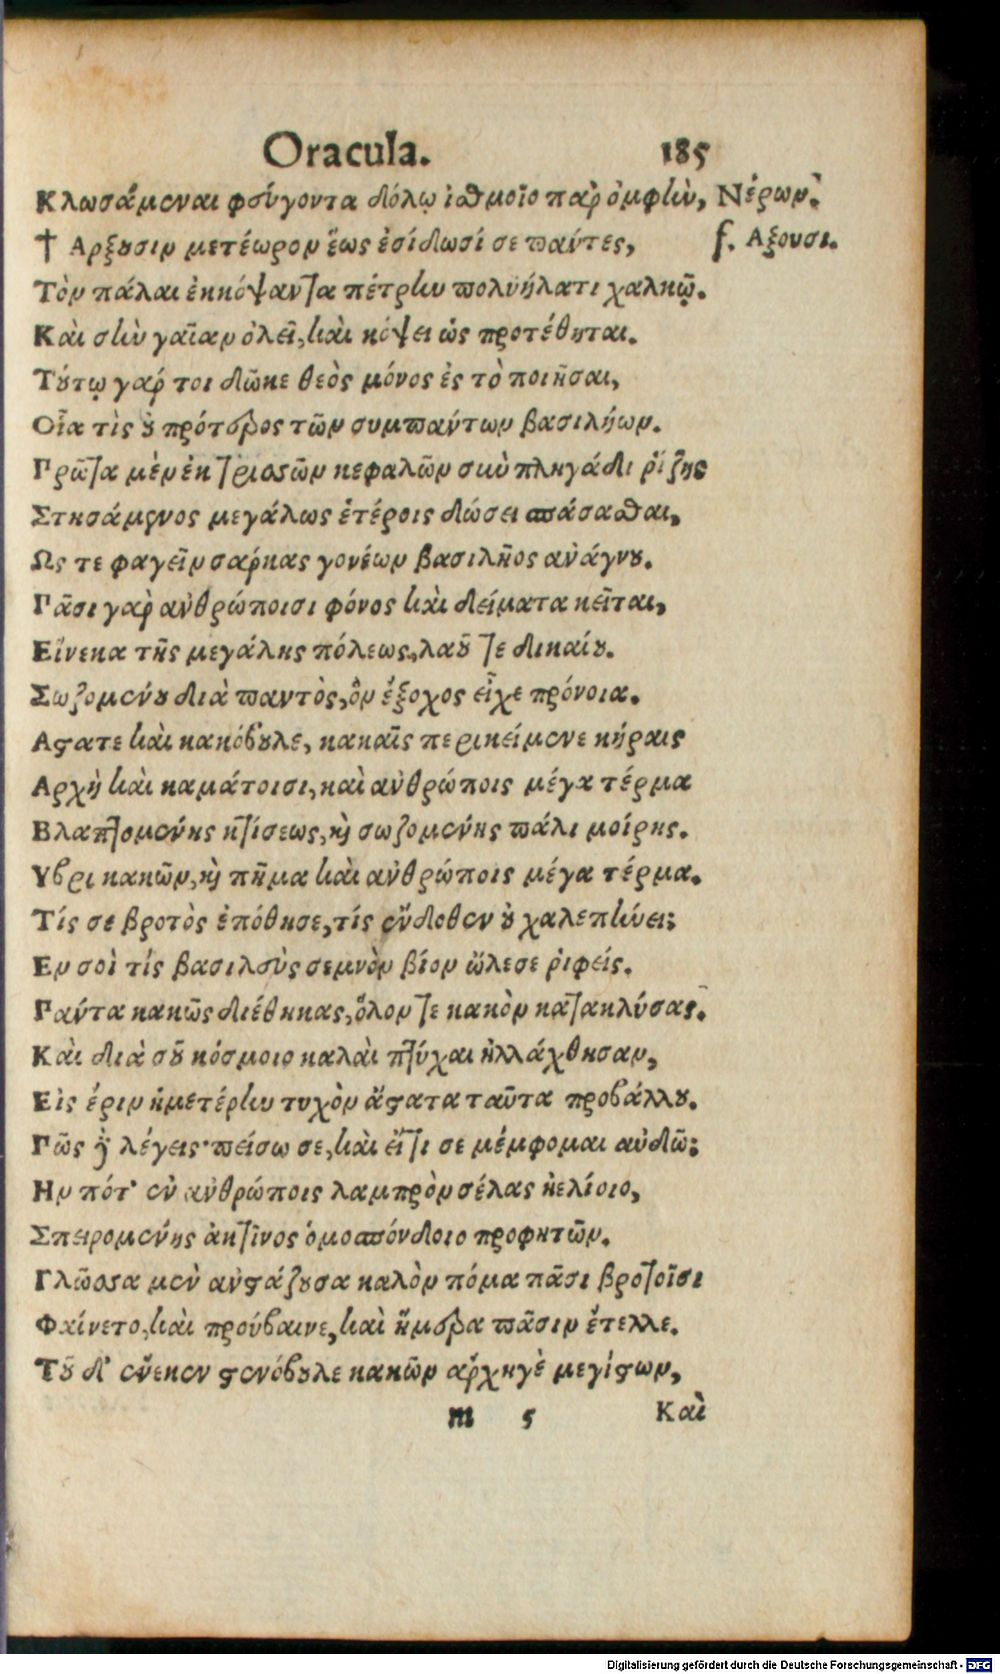 Oracula. 185
Κλωσάμεναι φεύγοντα δόλῳ ἰσθμοῖο παρ' ὀμφὴν, Νέρων.
† Αρξουσιν μετέωρον ἕως ἐσίδωσί σε πάντες, ſ. Αξουσι.
Τὸν πάλαι ἐκκόψαντα πέτρην πολυήλατι χαλκῷ.
Καὶ σὴν γαῖαν ὀλεῖ, καὶ κόψει ὡς προτέθηται.
Τούτῳ γάρ τοι δῶκε θεὸς μόνος ἐς τὸ ποιῆσαι,
Οἷα τὶς οὐ πρότερος τῶν συμπάντων βασιλήων.
Πρῶτα μὲν ἐκ τρισσῶν κεφαλῶν σὺν πληγάδι ῥίζης
Στησάμενος μεγάλως ἑτέροις δώσει σπάσασθαι,
Ως τε φαγεῖν σάρκας γονέων βασιλῆος ἀνάγνου.
Πᾶσι γὰρ ἀνθρώποισι φόνος καὶ δείματα κεῖται,
Εἵνεκα τῆς μεγάλης πόλεως, λαοῦ τε δικαίου.
Σωζομένου διὰ παντὸς, ὃν ἔξοχος εἶχε πρόνοια.
Αστατε καὶ κακόβουλε, κακαῖς περικείμενε κήραις
Αρχὴ καὶ καμάτοισι, καὶ ἀνθρώποις μέγα τέρμα
Βλαπτομένης κτίσεως, καὶ σωζομένης πάλι μοίρης.
Υβρι κακῶν, καὶ πῆμα καὶ ἀνθρώποις μέγα τέρμα.
Τίς σε βροτὸς ἐπόθησε, τίς ἔνδοθεν οὐ χαλεπήνει;
Εν σοὶ τίς βασιλεὺς σεμνὸν βίον ὤλεσε ῥιφείς.
Πάντα κακῶς διέθηκας, ὅλον τε κακὸν κατακλύσας.
Καὶ διὰ σοῦ κόσμοιο καλαὶ πτύχαι ἠλλάχθησαν,
Εἰς ἔριν ἡμετέρην τυχὸν ἄστατα ταῦτα προβάλλου.
Πῶς λέγεις· πείσω σε, καὶ εἴ τι σε μέμφομαι αὐδῶ;
Ην πότ' ἐν ἀνθρώποις λαμπρὸν σέλας ἠελίοιο,
Σπειρομένης ἀκτῖνος ὁμοσπόνδοιο προφητῶν.
Γλῶσσα μὲν ἀνστάζουσα καλὸν πόμα πᾶσι βροτοῖσι
Φαίνετο, καὶ προύβαινε, καὶ ἥμερα πᾶσιν ἔτελλε.
Τοῦ δ' ἕνεκεν στενόβουλε κακῶν ἀρχηγὲ μεγίστων,
m 5 Καὶ
Digitalisierung gefördert durch die Deutsche Forschungsgemeinschaft - DFG